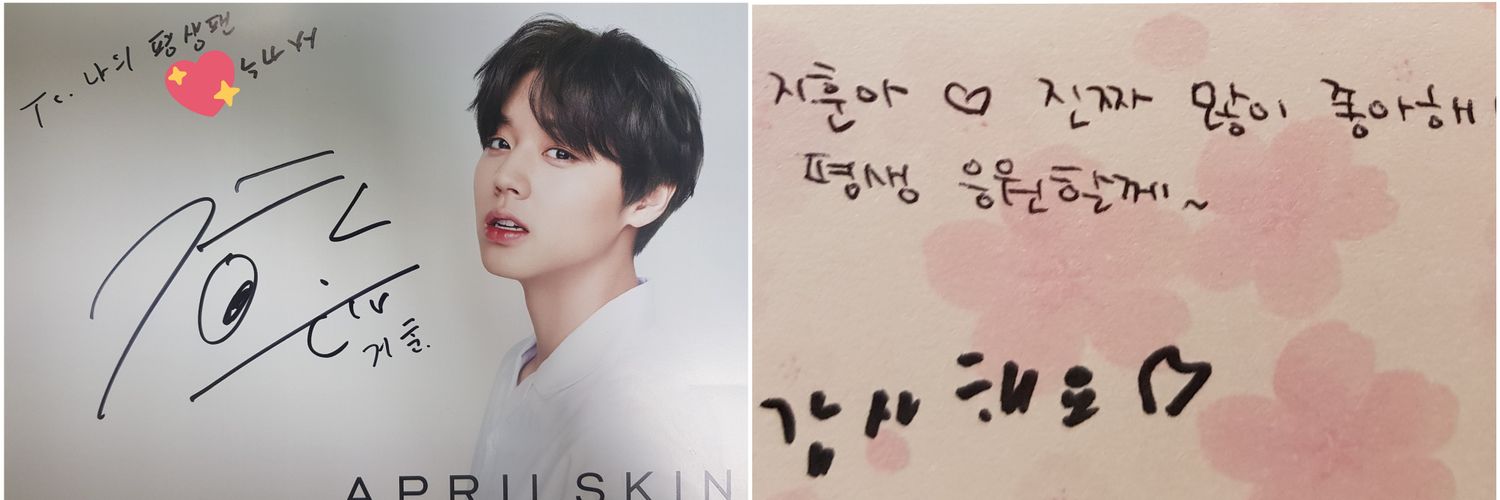 To. 나의 평생팬
지훈.
APRIL SKIN
지훈아 ♡ 진짜 많이 좋아해
평생 응원할께~
감사해요 ♡